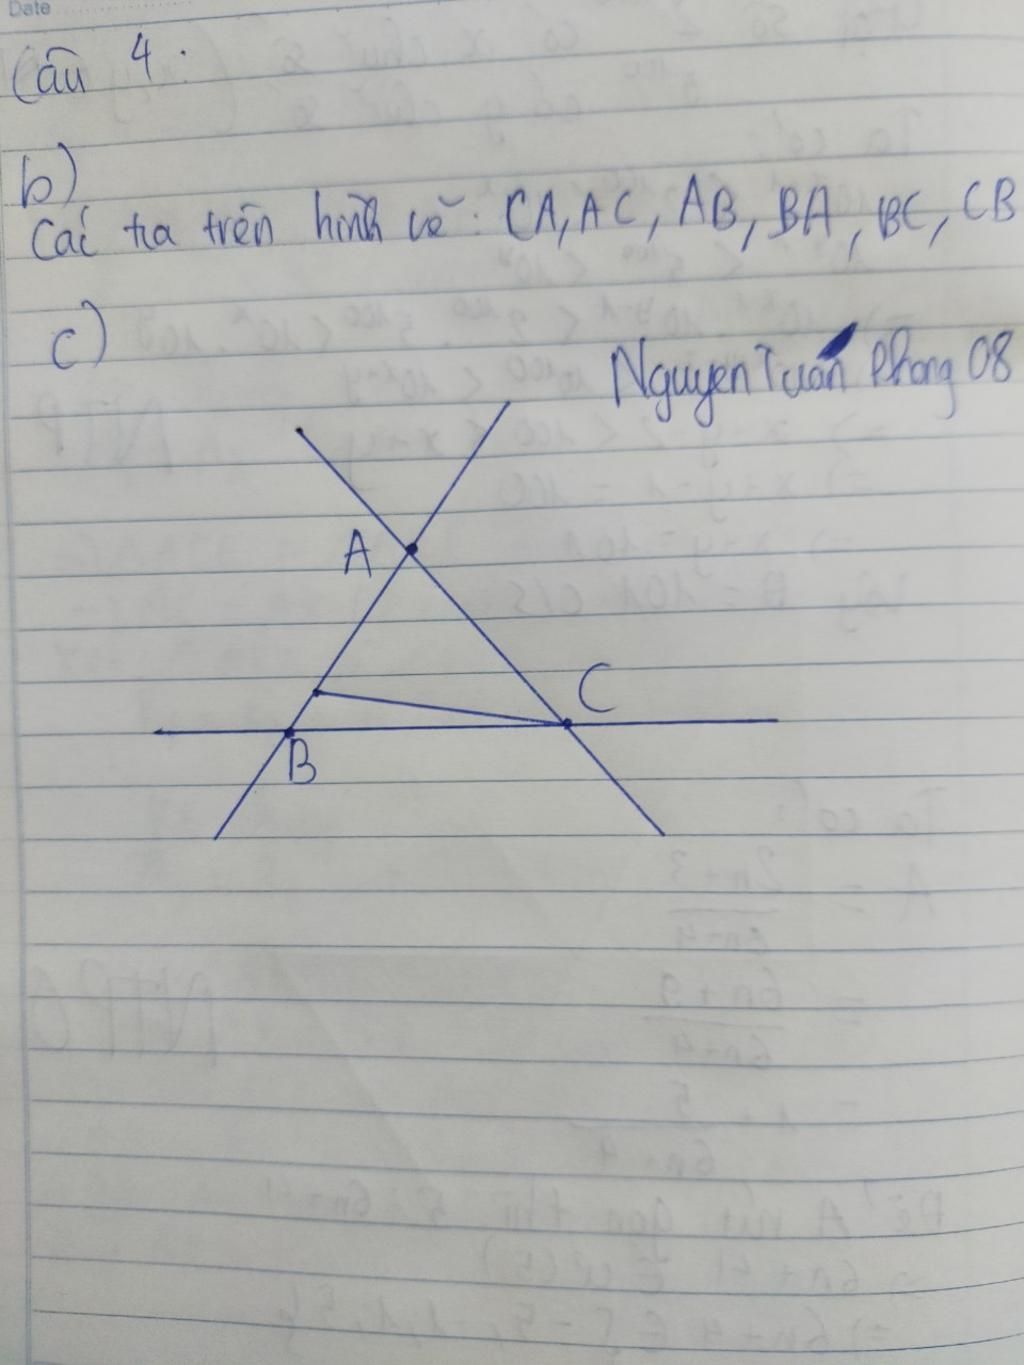 Date
Câu 4:
b)
Các tia trên hình vẽ: CA, AC, AB, BA, BC, CB
c)
Nguyen Tuấn Phong 08
A
C
B